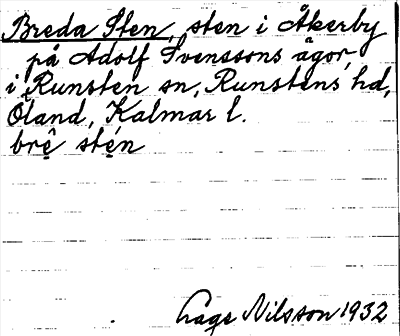 Breda Sten, sten i Åkerby
på Adolf Svenssons ägor,
i Runsten sn, Runstens hd,
Öland, Kalmar l.
brê̤ sté̤n
Lage Nilsson 1932